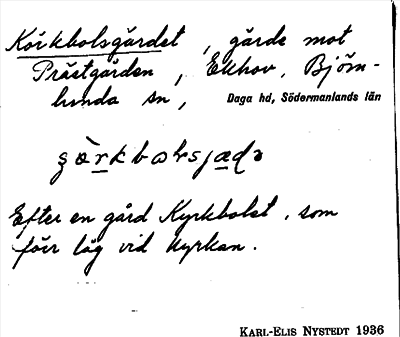 Körkbolsgärdet, gärde mot
Prästgården, Ekhov, Björn-
lunda sn, Daga hd, Södermanlands län
Efter en gård Kyrkbolet, som
förr låg vid kyrkan.
KARL-ELIS NYSTEDT 1936